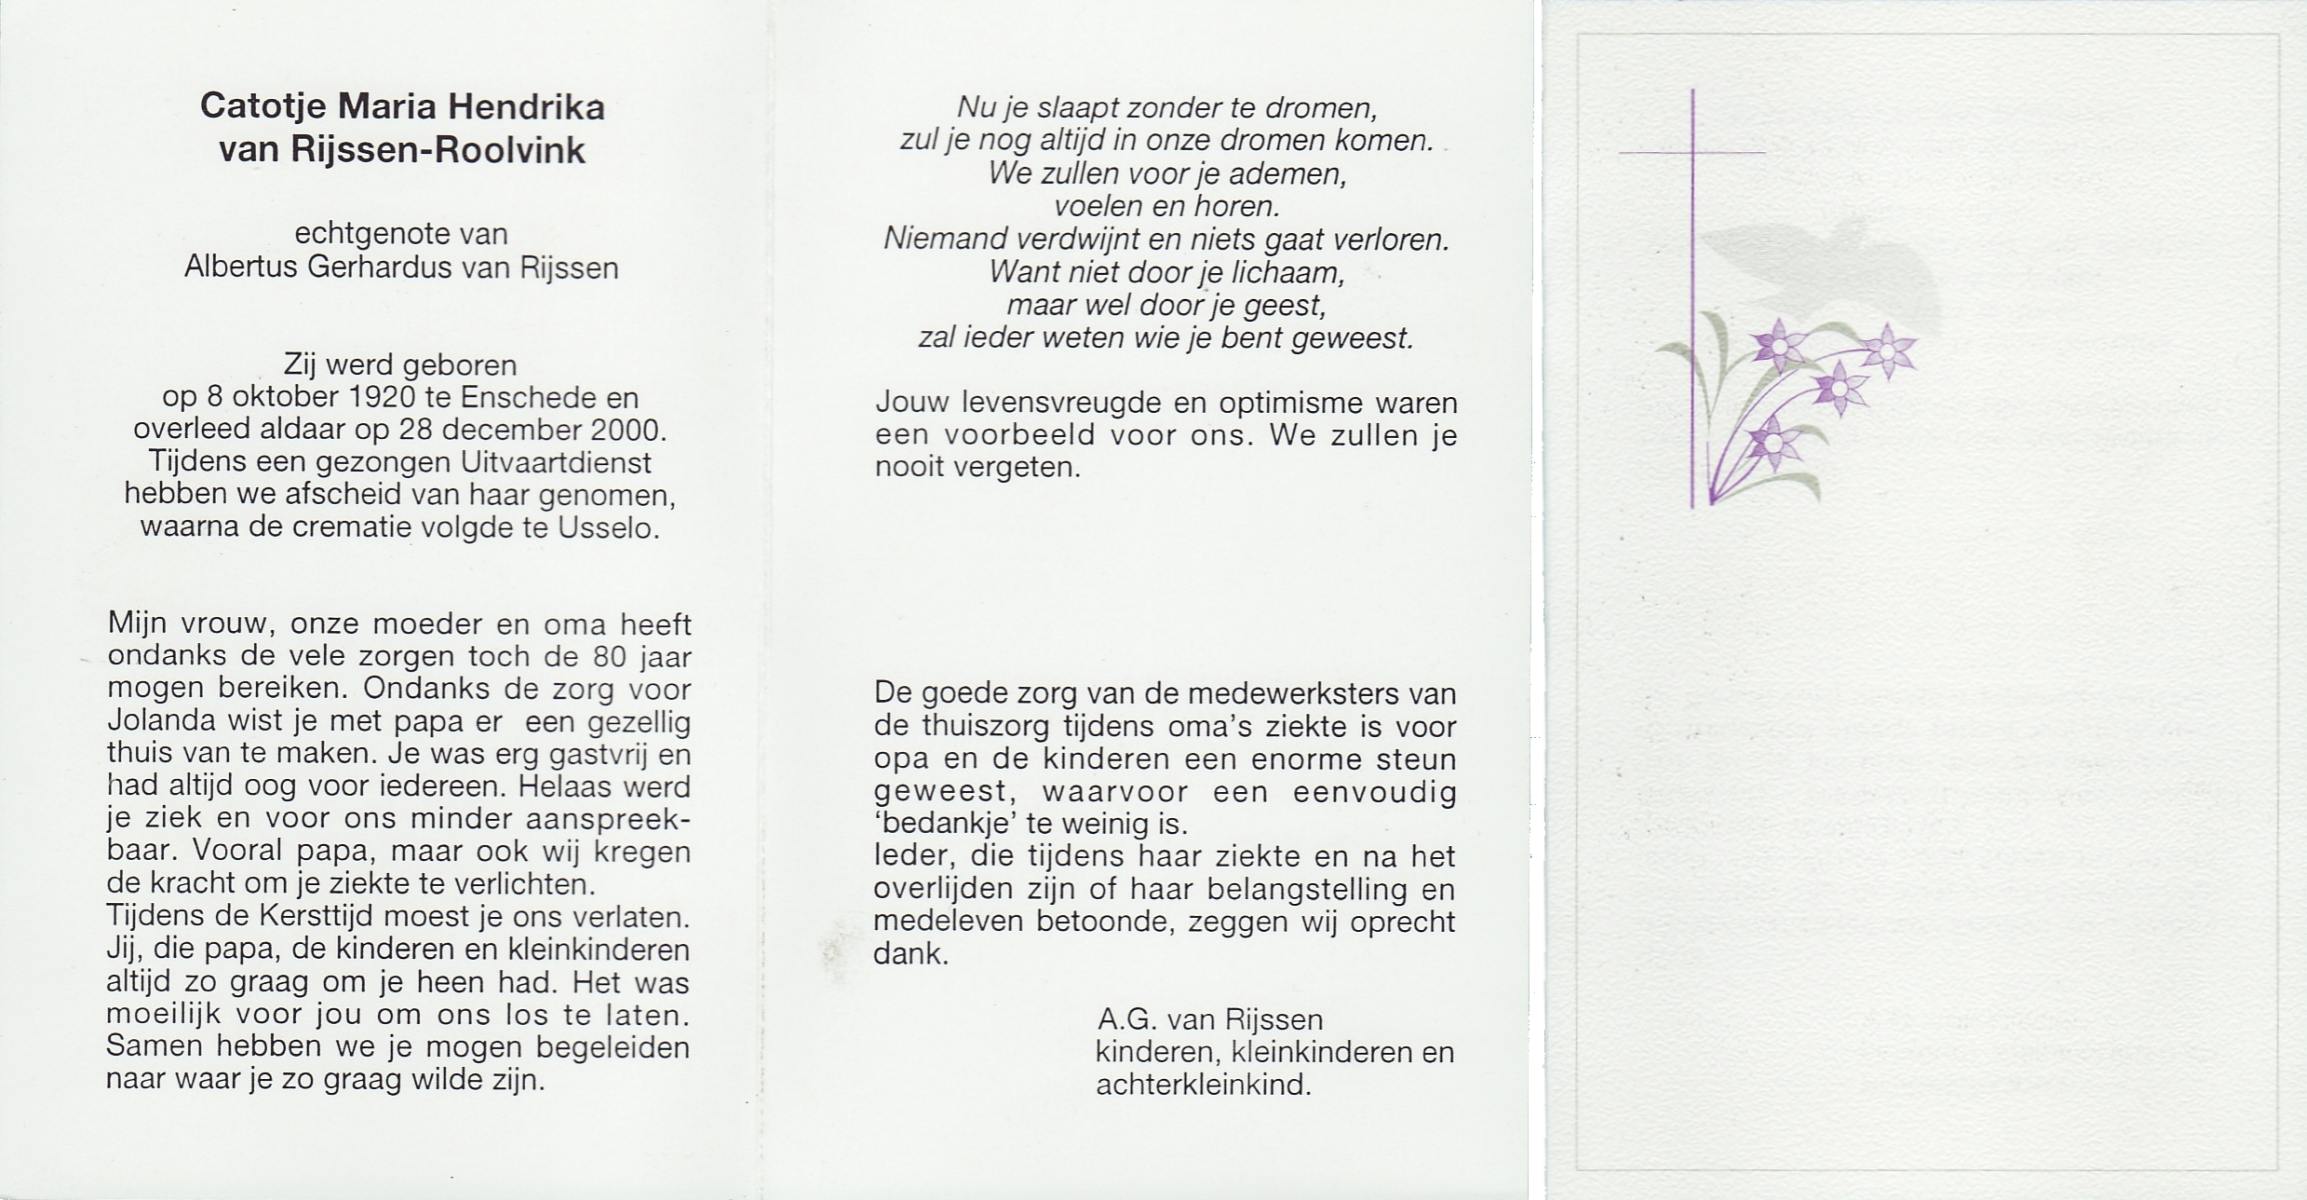 Catotje Maria Hendrika
van Rijssen-Roolvink
echtgenote van
Albertus Gerhardus van Rijssen
Zij werd geboren
op 8 oktober 1920 te Enschede en
overleed aldaar op 28 december 2000.
Tijdens een gezongen Uitvaartdienst
hebben we afscheid van haar genomen,
waarna de crematie volgde te Usselo.
Mijn vrouw, onze moeder en oma heeft
ondanks de vele zorgen toch de 80 jaar
mogen bereiken. Ondanks de zorg voor
Jolanda wist je met papa er een gezellig
thuis van te maken. Je was erg gastvrij en
had altijd oog voor iedereen. Helaas werd
je ziek en voor ons minder aanspreek-
baar. Vooral papa, maar ook wij kregen
de kracht om je ziekte te verlichten.
Tijdens de Kersttijd moest je ons verlaten.
Jij, die papa, de kinderen en kleinkinderen
altijd zo graag om je heen had. Het was
moeilijk voor jou om ons los te laten.
Samen hebben we je mogen begeleiden
naar waar je zo graag wilde zijn.
Nu je slaapt zonder te dromen,
zul je nog altijd in onze dromen komen.
We zullen voor je ademen,
voelen en horen.
Niemand verdwijnt en niets gaat verloren.
Want niet door je lichaam,
maar wel door je geest,
zal ieder weten wie je bent geweest.
Jouw levensvreugde en optimisme waren
een voorbeeld voor ons. We zullen je
nooit vergeten.
De goede zorg van de medewerksters van
de thuiszorg tijdens oma's ziekte is voor
opa en de kinderen een enorme steun
geweest, waarvoor een eenvoudig
‘bedankje’ te weinig is.
Ieder, die tijdens haar ziekte en na het
overlijden zijn of haar belangstelling en
medeleven betoonde, zeggen wij oprecht
dank.
A.G. van Rijssen
kinderen, kleinkinderen en
achterkleinkind.